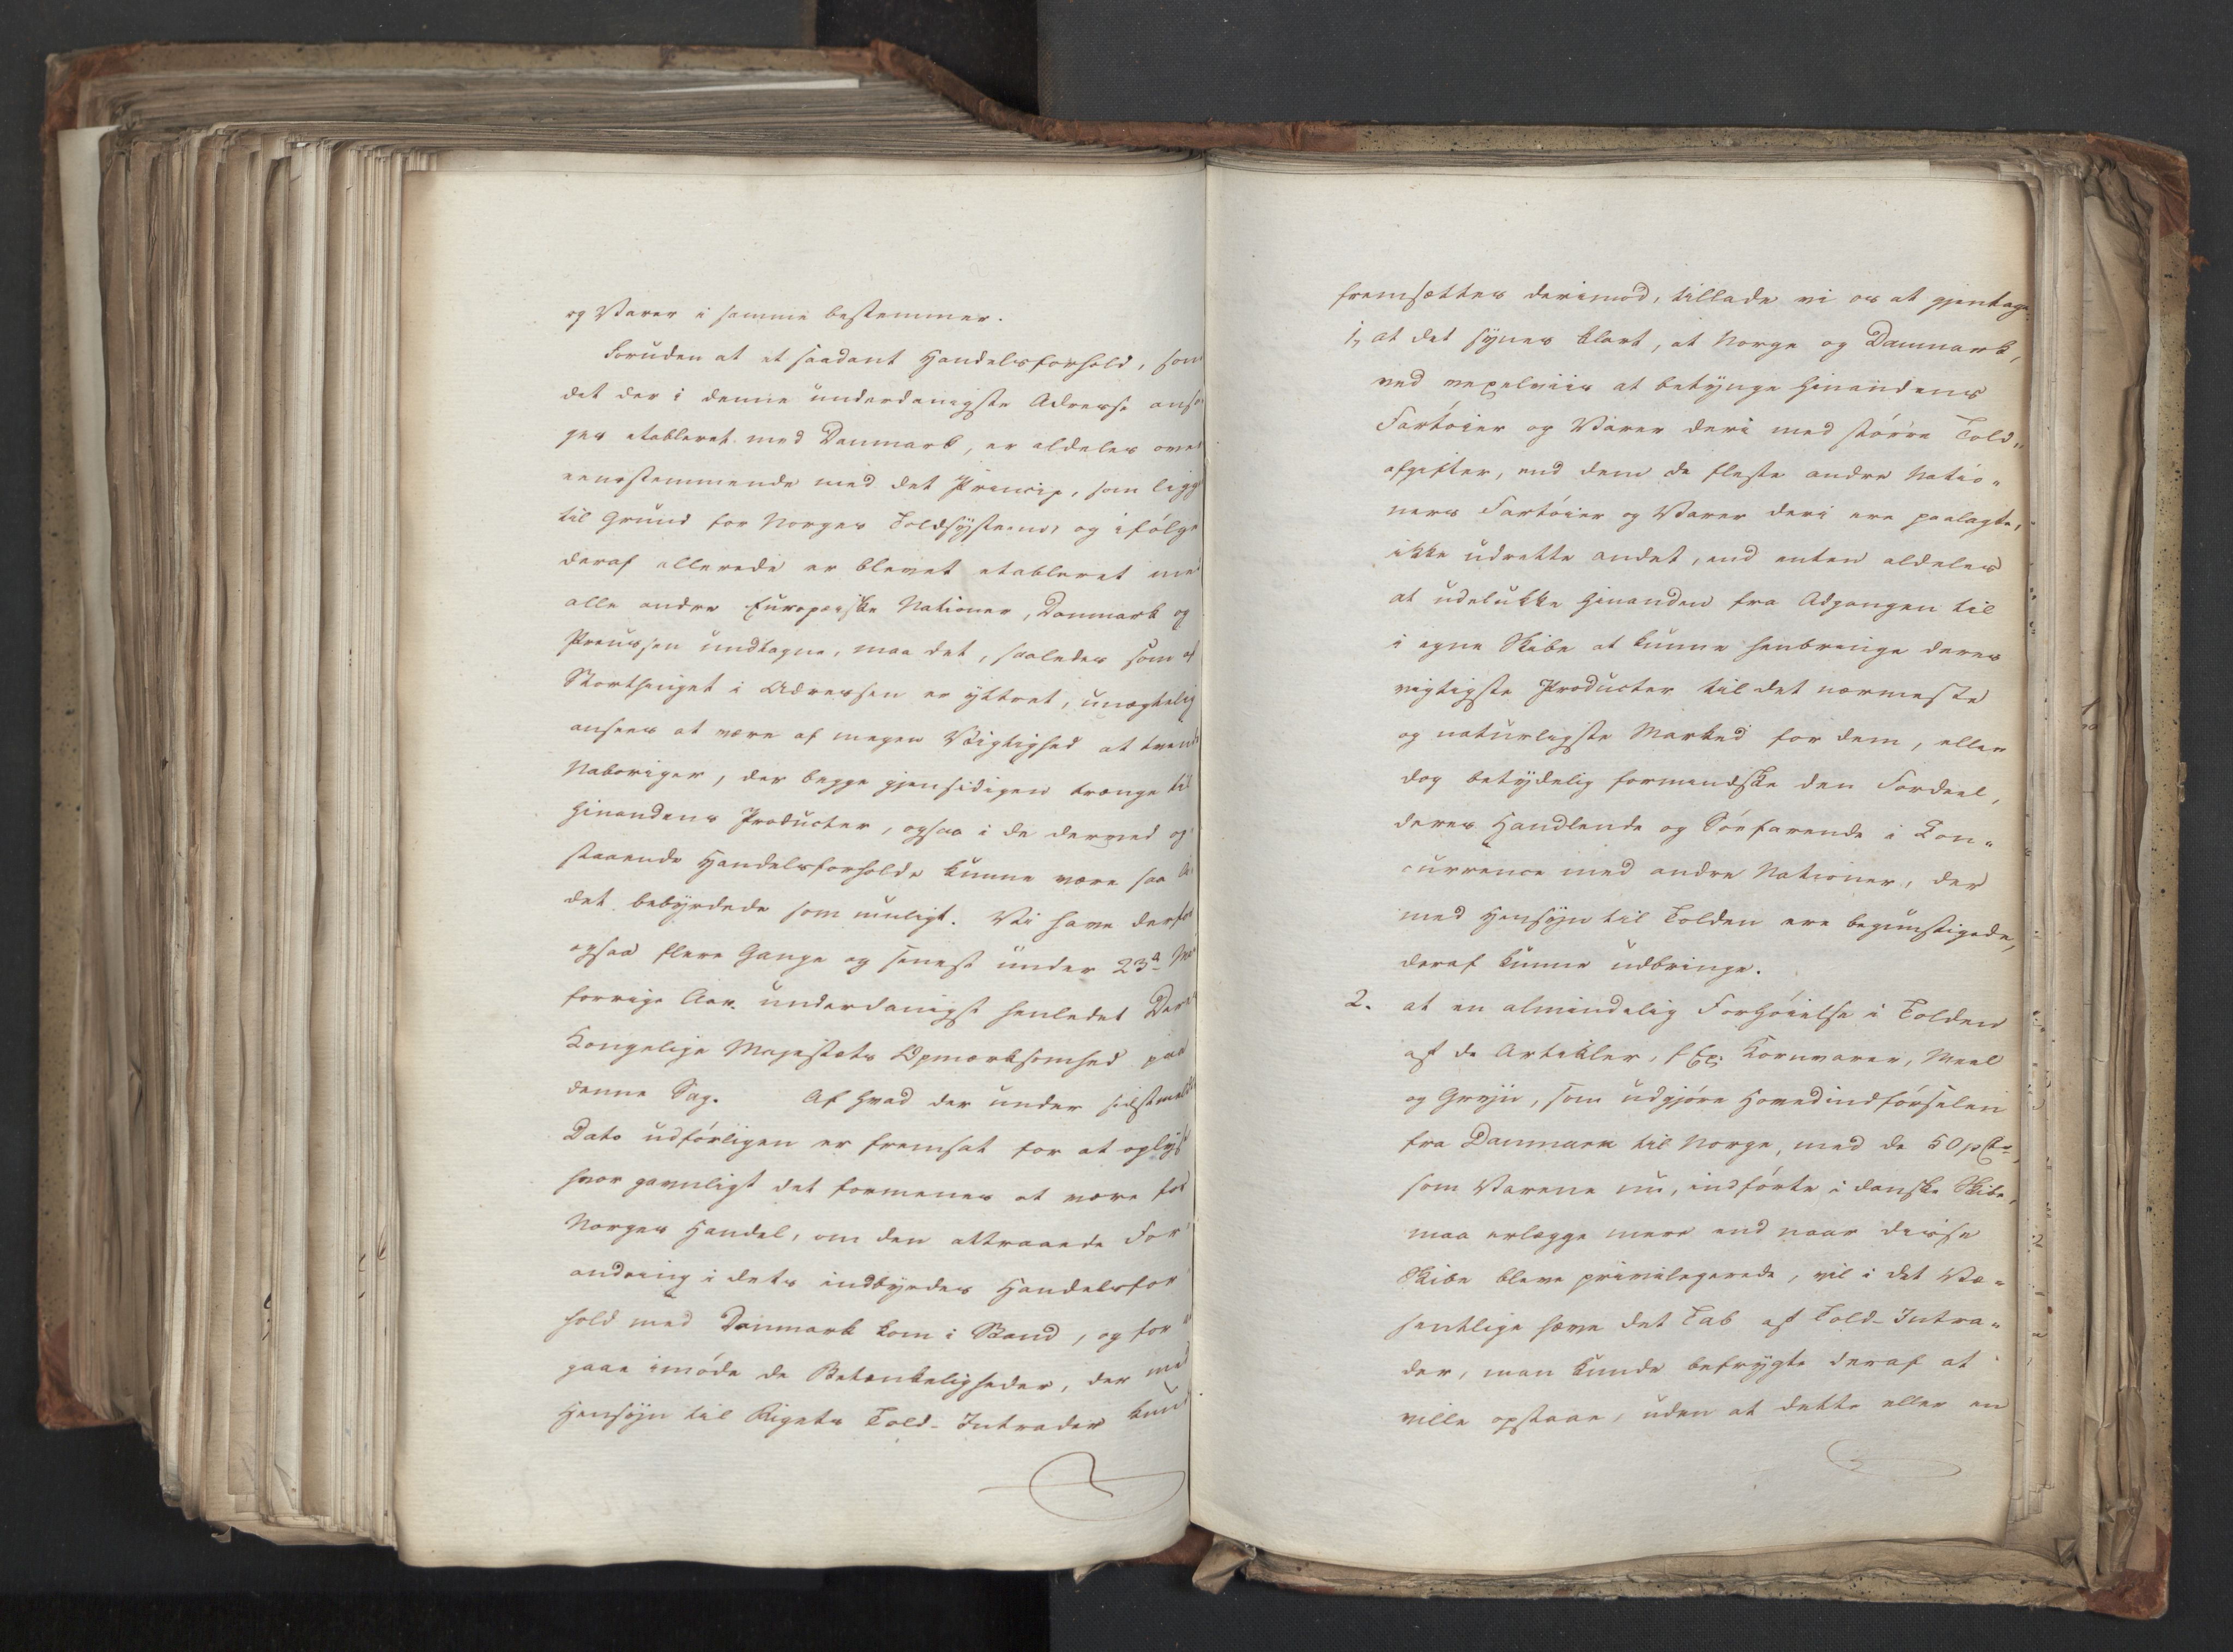 og Varer i samme bestemmer.
Foruden at et saadant Handelsforhold, som
det der i denne underdanigste Adresse ansö-
ges etableret med Danmark, er aldeles over
eensstemmende med det Princip, som ligge
til Grund for Norges Toldsystem, og ifölge
deraf allerede er blevet etableret med
alle andre Europæiske Nationer, Danmark og
Preussen undtagne, maa det, saaledes som af
Storthinget i Adressen er yttret, unægtelig
ansees at være af megen Vigtighed at tvende
Naboriger, der begge gjensidigen trænge til
hinandens Producter, ogsaa i de derved op-
staaende Handelsforhold, kunne være saa li-
det bebyrdede som muligt. Vi have derfor
ogsaa flere Gange og senest under 23d
forrige Aar underdanigst henledet Deres
Kongelige Majestæts Opmærksomhed paa
denne Sag. Af hvad der under sidstmeldte
Dato udförligen er fremsat for at oplyse
hvor gavnligt det formenes at være for
Norges Handel, om den attraaede For-
andring i dets indbyrdes Handelsfor-
hold med Danmark kom i Stand, og for at
gaae imöde de Betænkeligheder, der med
Hensyn til Rigets Told-Intrader kunde
fremsættes derimod, tillade vi os at gjentage:
1, at det synes klart, at Norge og Danmark,
ved vexelviis at betynge hinandens
Fartöier og Varer deri med större Told-
afgifter, end dem de fleste andre Natio-
ners Fartöier og Varer deri ere paalagte,
ikke udrette andet, end enten aldeles
at udelukke hinanden fra Adgangen til
i egne Skibe at kunne henbringe deres
vigtigste Producter til det nærmeste
og naturligste Marked for dem, eller
dog betydelig formindske den Fordeel,
deres Handlende og Söefarende i Con-
currence med andre Nationer, der
med Hensyn til Tolden ere begunstigede,
deraf kunne udbringe.
2. at en almindelig Forhöielse i Tolden
af de Artikler, f. Ex: Kornvarer, Meel
og Gryn, som udgjöre Hovedindförselen
fra Danmark til Norge, med de 50 pCt,
som Varene nu, indförte i danske Skibe,
maa erlægge mere end naar disse
Skibe bleve privilegerede, vil i det Væ-
sentlige hæve det Tab af Told-Intra-
der, man kunde befrygte deraf at
ville opstaae, uden at dette eller en